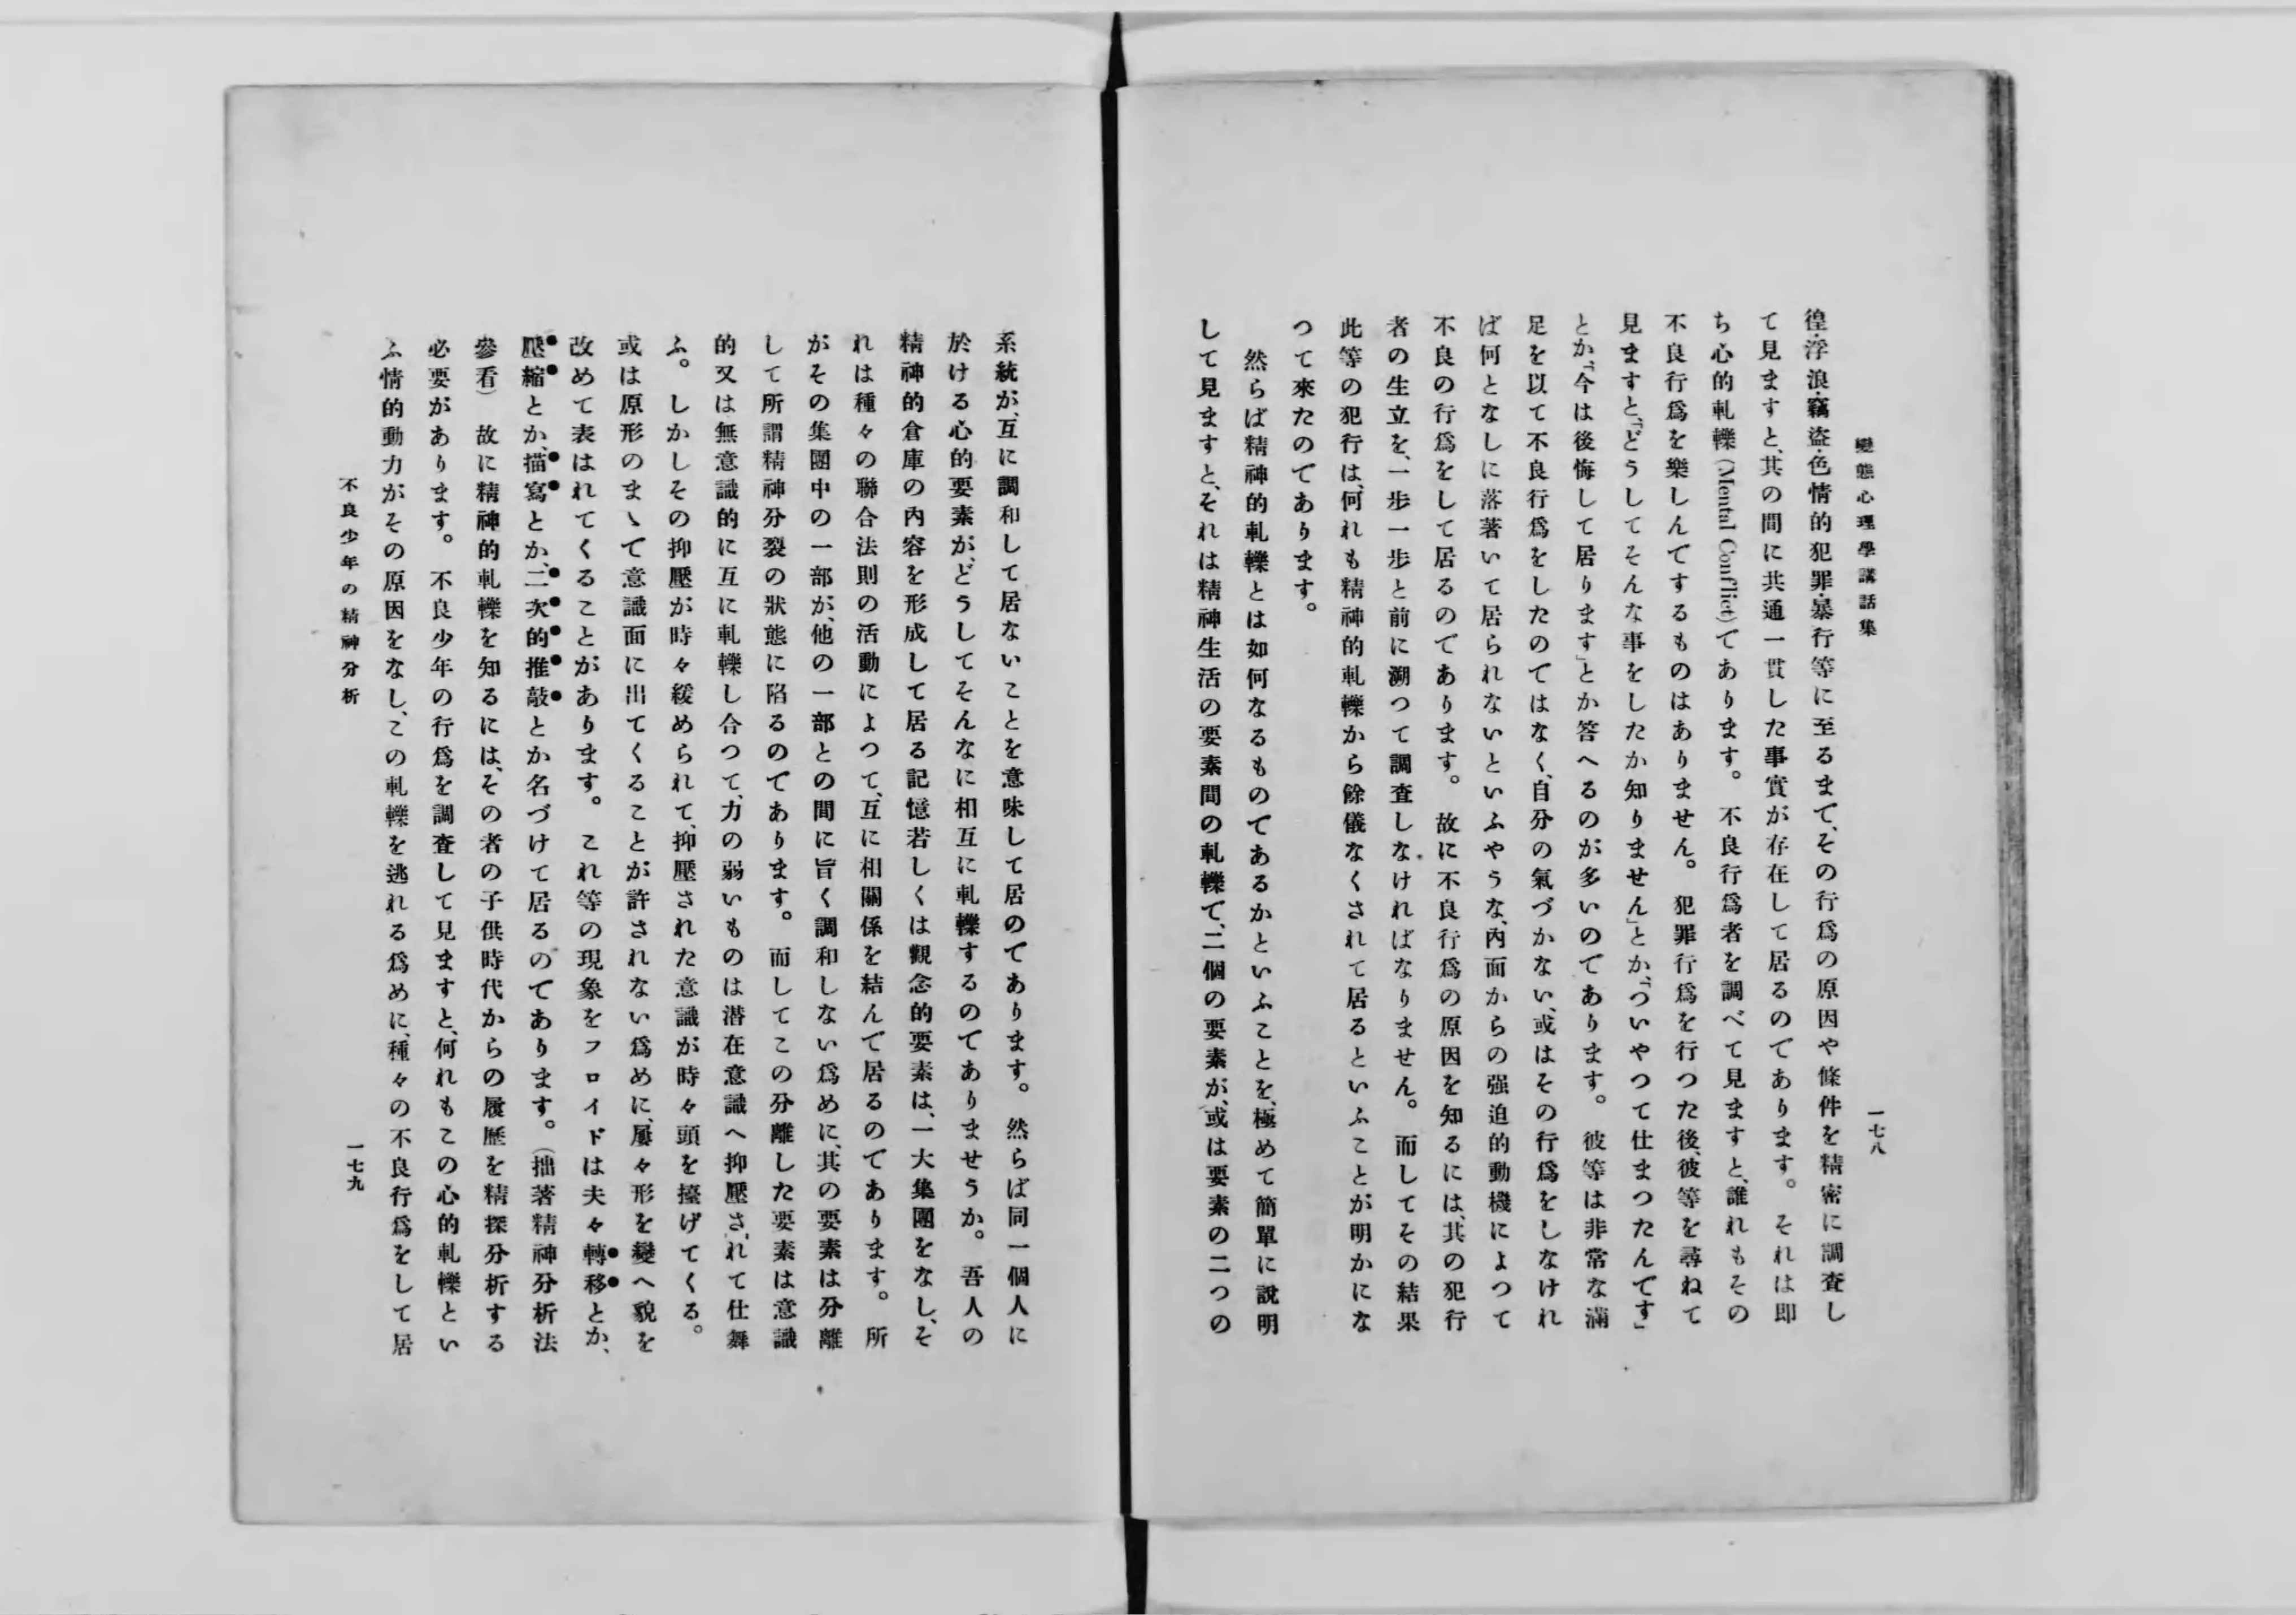 變態心理學講話集
一七八
徨・浮浪・竊盜・色情的犯罪・暴行等に至るまで、その行爲の原因や條件を精密に調査し
て見ますと、其の間に共通一貫した事實が存在して居るのであります。それは即
ち心的軋轢(Mental Conflict)であります。不良行爲者を調べて見ますと、誰れもその
不良行爲を樂しんでするものはありません。犯罪行爲を行つた後、彼等を尋ねて
見ますと、「どうしてそんな事をしたか知りません」とか、「ついやつて仕まつたんです」
とか、「今は後悔して居ります」とか答へるのが多いのであります。彼等は非常な滿
足を以て不良行爲をしたのではなく、自分の氣づかない、或はその行爲をしなけれ
ば何となしに落著いて居られないといふやうな、內面からの强迫的動機によつて
不良の行爲をして居るのであります。故に不良行爲の原因を知るには、其の犯行
者の生立を、一步一步と前に溯つて調査しなければなりません。而してその結果
此等の犯行は、何れも精神的軋轢から餘儀なくされて居るといふことが明かにな
つて來たのであります。
然らば精神的軋轢とは如何なるものであるかといふことを、極めて簡單に說明
して見ますと、それは精神生活の要素間の軋轢で、二個の要素が、或は要素の二つの
系統が、互に調和して居ないことを意味して居のであります。然らば同一個人に
於ける心的要素が、どうしてそんなに相互に軋轢するのでありませうか。吾人の
精神的倉庫の內容を形成して居る記憶若しくは觀念的要素は、一大集團をなし、そ
れは種々の聯合法則の活動によつて、互に相關係を結んで居るのであります。所
がその集團中の一部が、他の一部との間に旨く調和しない爲めに、其の要素は分離
して所謂精神分裂の狀態に陷るのであります。而してこの分離した要素は意識
的又は無意識的に互に軋轢し合つて、力の弱いものは潜在意識へ抑壓されて仕舞
ふ。しかしその抑壓が時々緩められて、抑壓された意識が時々頭を擡げてくる。
或は原形のまゝで意識面に出てくることが許されない爲めに、屢々形を變へ貌を
改めて表はれてくることがあります。これ等の現象をフロイドは夫々轉移とか、
壓縮とか、描寫とか、二次的推敲とか名づけて居るのであります。(拙著精神分析法
參看)故に精神的軋轢を知るには、その者の子供時代からの履歷を精探分析する
必要があります。不良少年の行爲を調査して見ますと、何れもこの心的軋轢とい
ふ情的動力がその原因をなし、この軋轢を逃れる爲めに、種々の不良行爲をして居
不良少年の精神分析
一七九